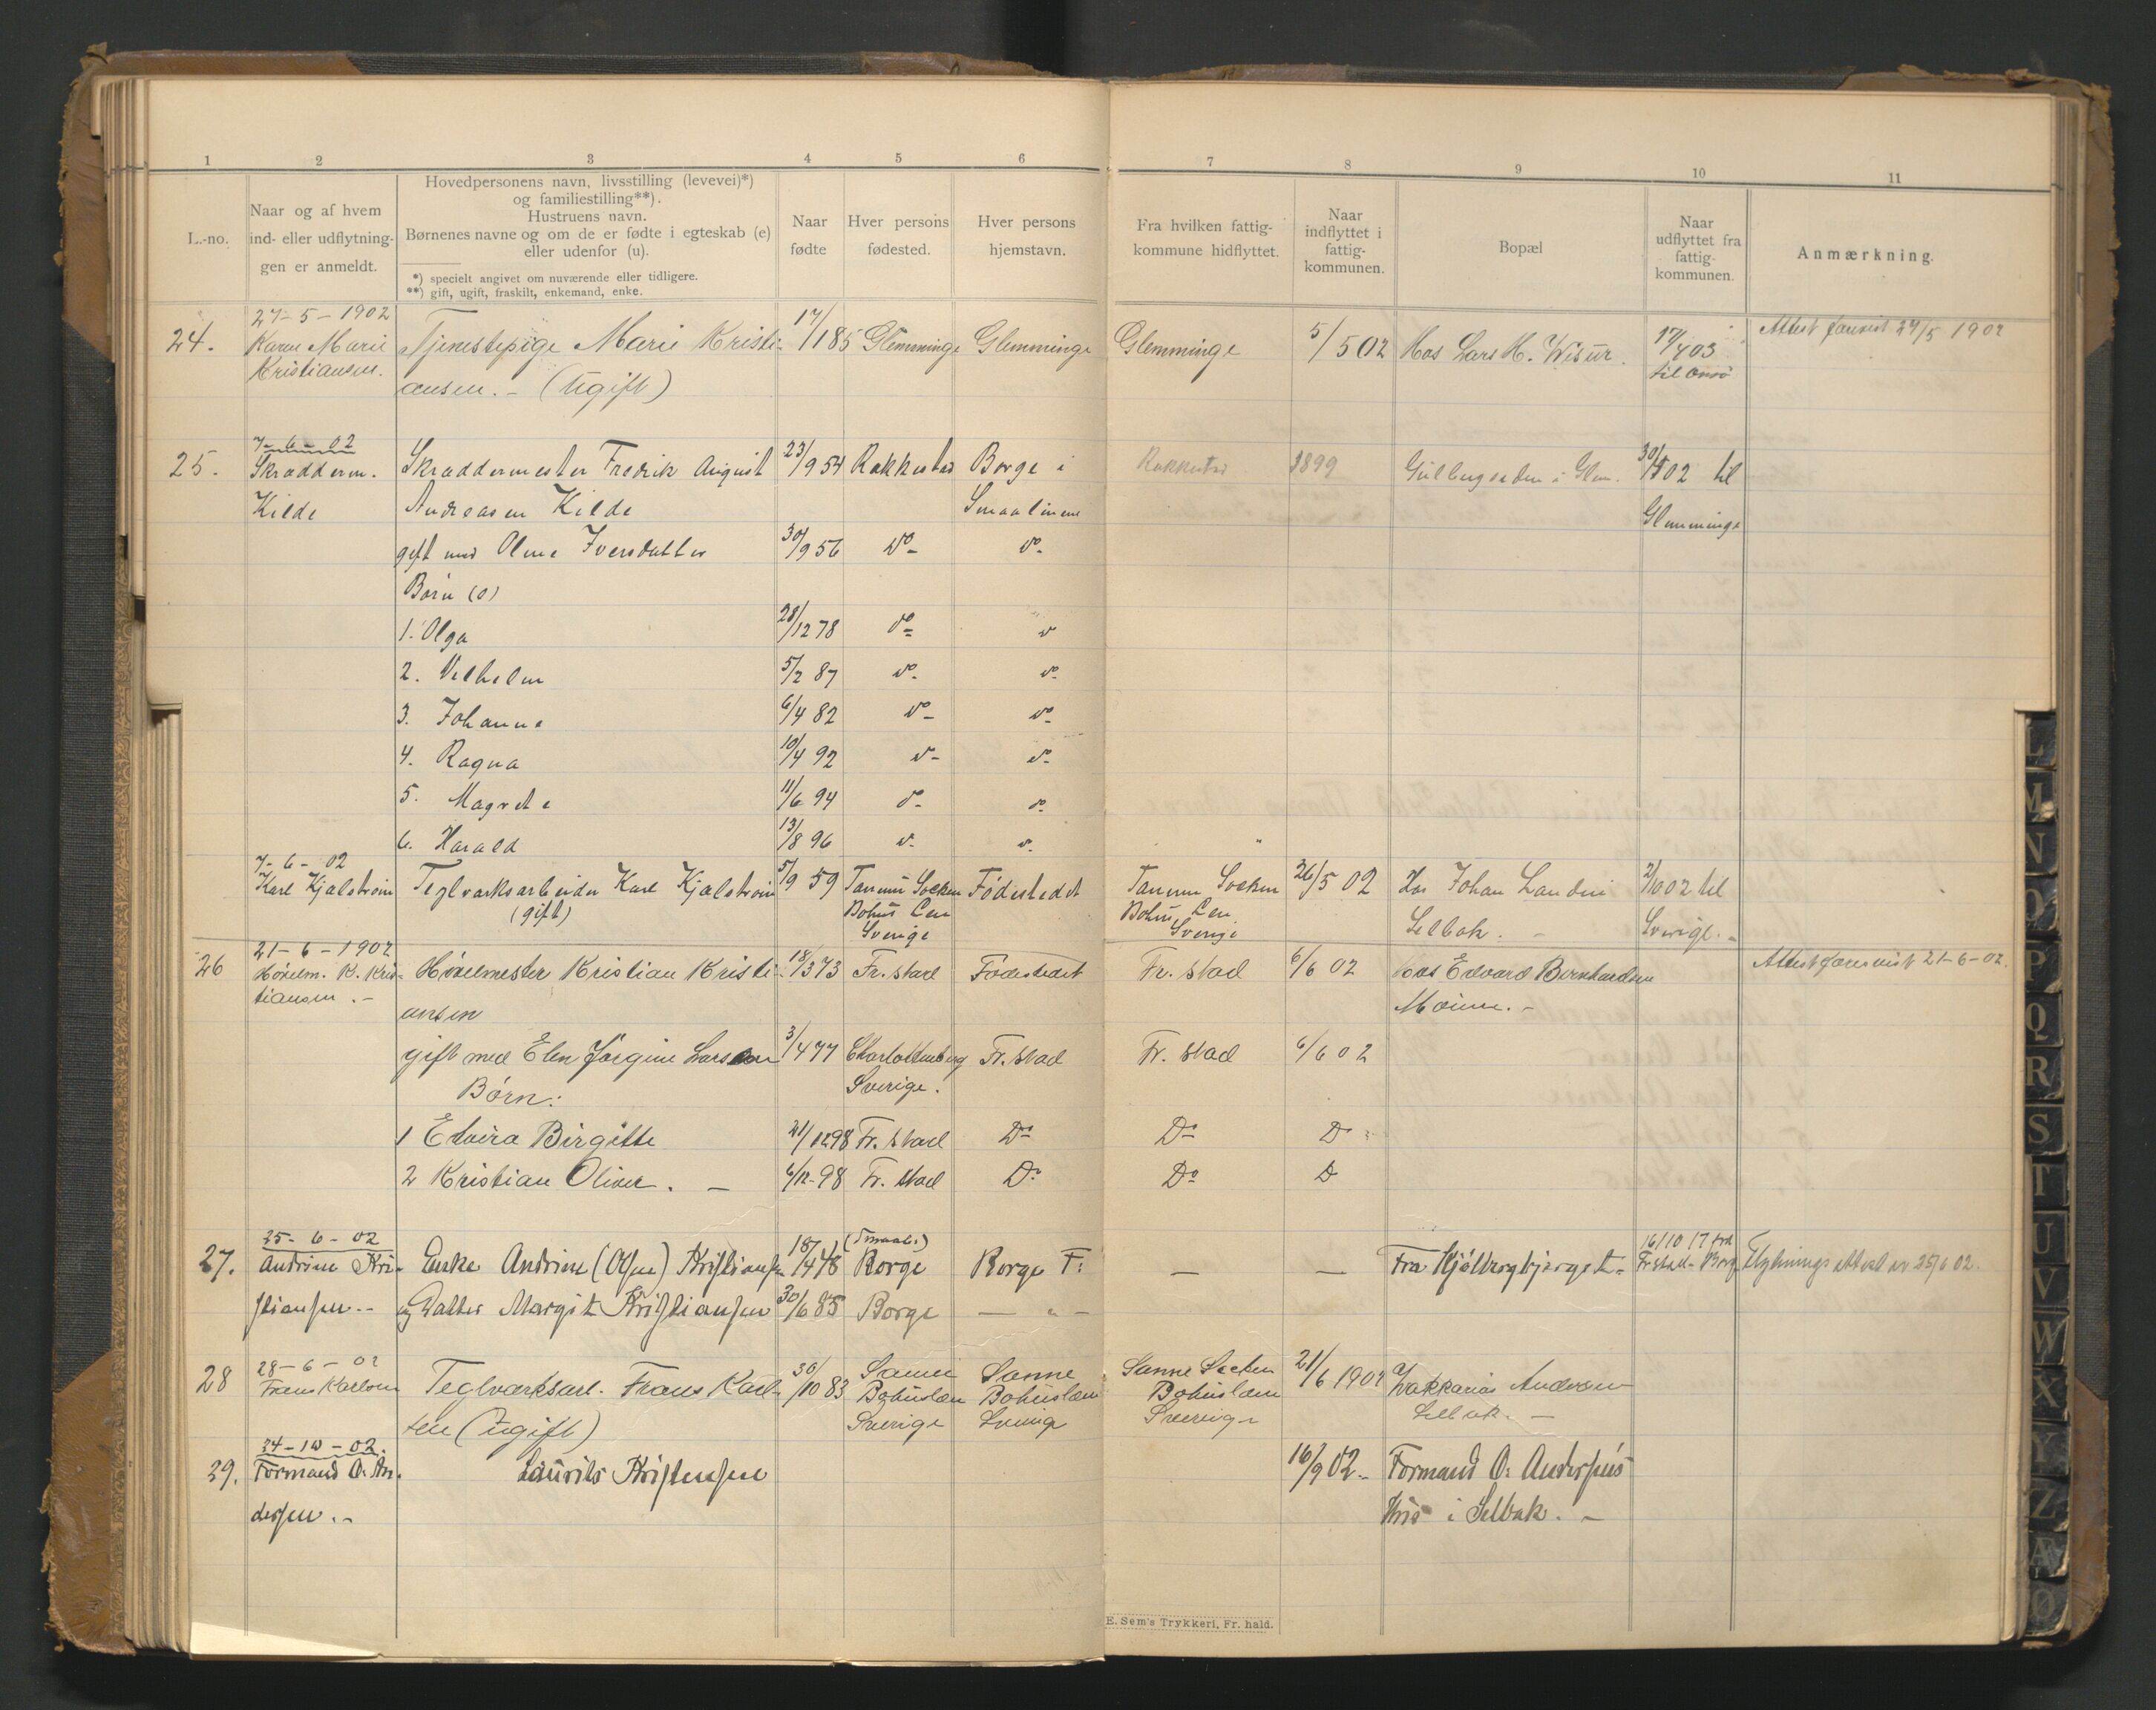 1 2 3 4 5 6 7 8 9 10 11
L.-no.
Naar og af hvem
ind- eller udflytnin-
gen er anmeldt.
Hovedpersonens navn, livsstilling (levevei)*)
og familiestilling**).
Hustruens navn.
Børnenes navne og om de er fødte i egteskab (e)
eller udenfor (u).
*) specielt angivet om nuværende eller tidligere.
**) gift, ugift, fraskilt, enkemand, enke.
Naar
fødte
Hver persons
fødested.
Hver persons
hjemstavn.
Fra hvilken fattig-
kommune hidflyttet.
Naar
indflyttet i
fattig-
kommunen.
Bopæl
Naar
udflyttet fra
fattig-
kommunen.
Anmærkning.
27-5-1902
24. Karen Marie Tjenestepige Marie Kristi- 17/1 85 Glemminge Glemminge Glemminge 5/5 02 Hos Lars H. 17/4 03 Attest forevist 27/5 1902
Kristiansen. ansen. - (Ugift) til Onsø
7-6-02
25. Skrædderm. Skræddermester Fredrik August 23/9 54 Rakkestad Borge i Rakkestad 1899 Gulbergseden i Glem. 30/ 02 til
Kilde Andreasen Kilde Smaalinene Glemminge
gift med Oline Iversdatter 30/9 56 Do- do-
Børn (e)
1. Olga 28/12 78 do- do
2. Vilhelm 5/2 87 do- do-
3. Johanne 6/4 82 do- do-
4. Ragna 10/4 92 do- do-
5. Magrete 11/6 94 do- do-
6. Harald 13/8 96 do- do- "
7-6-02
Karl Kjølstrøm Teglværksarbeider Karl Kjølstrøm 5/9 59 Tanum Socken Fødestedet Tanum Socken 26/5 02 Hos Johan Landin 2/10 02 til
(gift) Bohus Len Bohus Len Selbak. - Sverige. -
Sverige Sverige
21-6-1902
26 Høvelm. K. Kris- Høvelmester Kristian Kristi- 18/3 73 Fr.stad Fødestedet Fr. stad 6/6 02 Hos Edvard Bernhardsen Attest forevist 21-6-02.
tiansen. - ansen Moum. -
gift med Elen Jørgine Larsen 3/4 77 Charlottenberg Fr. stad Fr. stad 6/6 02
Børn: Sverige.
1 Elvira Birgitte 21/12 98 Fr. stad Do Do D
2 Kristian Oliver. - 6/12-98 Fr. stad Do Do D
25-6-02 (Smaal.) 16/10 17 fra
27. Andrine Kri- Enke Andrine (Olsen) Kristiansen 18/4 48 Borge Borge F: — — Fra Hjølbergbjerget- Fr.stad- Borge Flytnings attest av 25/6 02.
stiansen -- og Datter Margit Kristiansen 30/6 85 Borge — " —
28-6-02
28 Frans Karlsen Teglværksarb. Frans Karl- 30/10 83 Sanne Sanne Sanne Socken 21/6 1902 Zakkarias Andersen
sen (Ugift) Bohuslæn Bohuslæn Bohuslæn Selbak. -
Sverige Sverige Sverige
24-10-02.
29. Formand O. An- Laurits Kristensen 16/9 02.- Formand O. Andersens
dersen. - Hus i Selbak. -
E. Sem's Trykkeri, Fr. hald.
L M N O P Q R S T U V W X Y Z Æ Ø